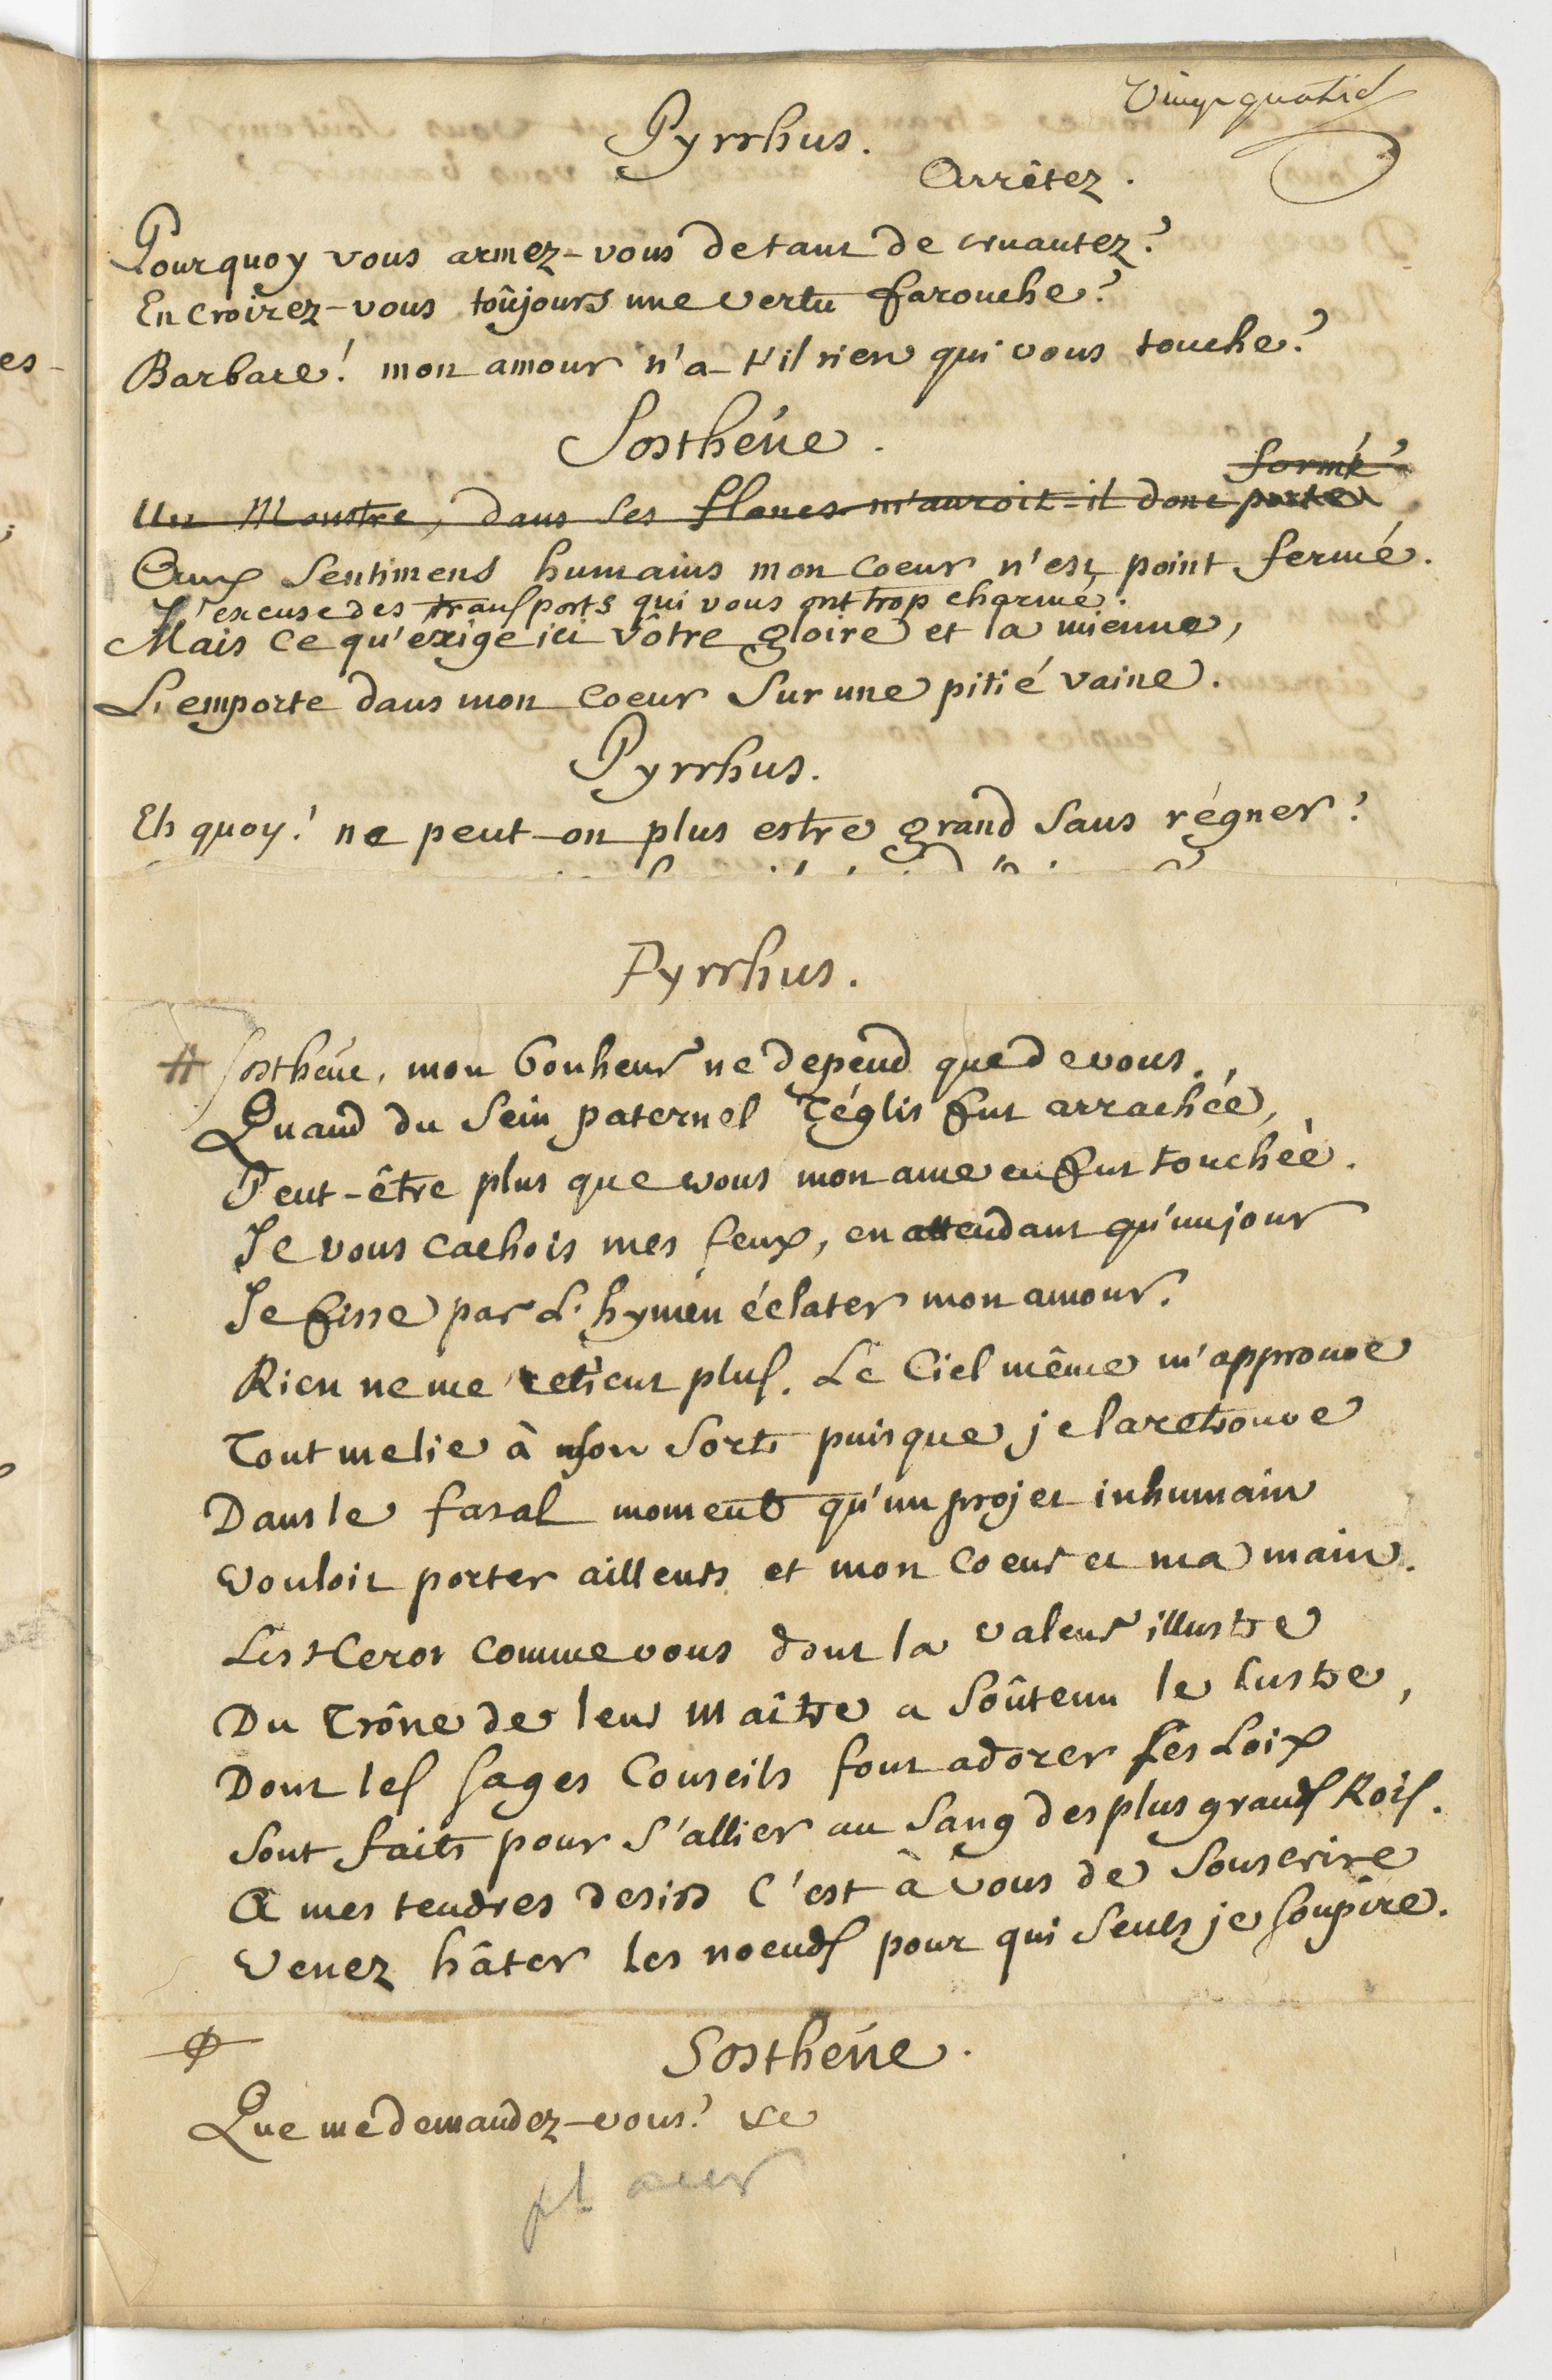 Vingt quatre
Pyrrhus.
Arrêtez.
Pourquoy vous armez-vous de tant de cruautez?
En croirez-vous toûjours une vertu farouche?
Barbare! mon amour n'a-t'il rien qui vous touche?
Sosthéne.
formé
Un Monstre, dans ses flancs m'auroit-il donc porté
Aux sentimens humains mon coeur n'est point fermé.
J'excuse des transports qui vous ont trop charmé.
Mais ce qu'exige ici vôtre gloire et la mienne,
L'emporte dans mon coeur sur une pitié vaine.
Pyrrhus.
Eh quoy! ne peut-on plus estre grand sans régner?
Pyrrhus.
# Sosthéne, mon bonheur ne depend que de vous.
Quand du sein paternel Téglis fut arrachée,
Peut-être plus que vous mon ame en fut touchée.
Je vous cachois mes feux, en attendant qu'un jour
Je fisse par l'hymen éclater mon amour.
Rien ne me retient plus. Le Ciel même m'approuve
Tout me lie à son sort puisque je la retrouve
Dans le fatal moment qu'un projet inhumain
Vouloit porter ailleurs et mon coeur et ma main.
Les Heros comme vous dont la valeur illustre
Du Trône de leur Maître a soûtenu le lustre,
Dont les sages Conseils font adorer ses Loix
Sont faits pour s'allier au sang des plus grands Rois.
A mes tendres desirs c'est à vous de souscrire
Venez hâter les noeuds pour qui seuls je soupire.
Sosthéne.
Que me demandez-vous? &c